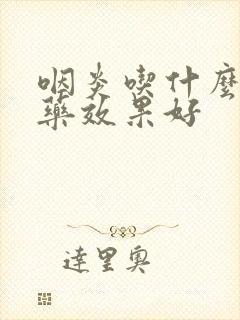 咽炎喫什麼
藥效果好
達里奧